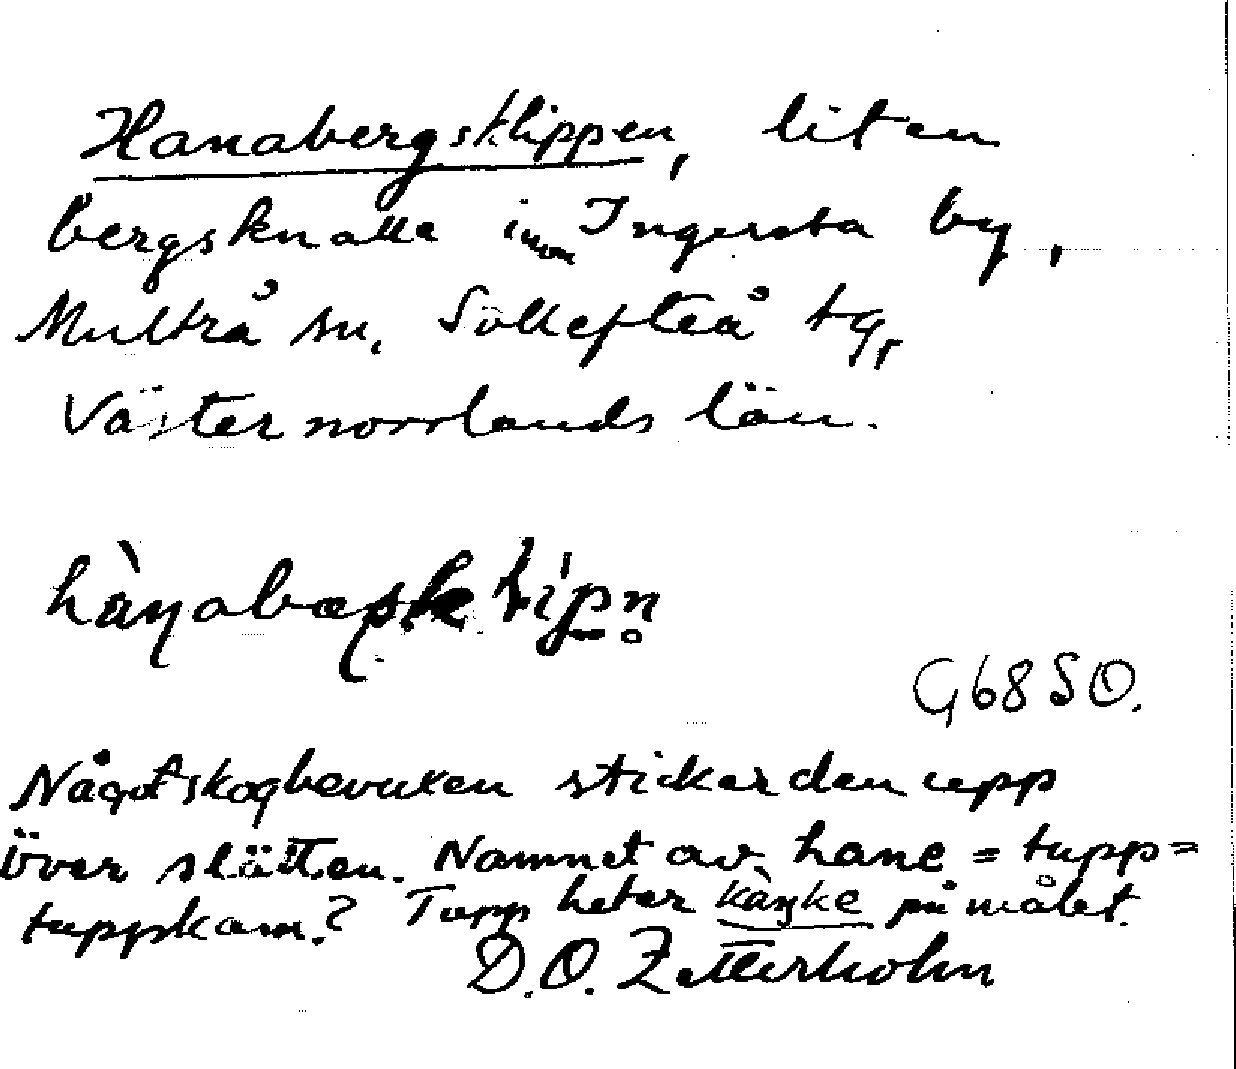 Hanabergsklippen, liten
bergsknalle inom Ingersta by,
Multrå sn, Sollefteå tg,
Västernorrlands län.
G68 SO.
Något skogbevuxen sticker den upp
över slätten. Namnet av hane = tupp =
tuppskam? Tupp heter på målet.
D.O. Zetterholm